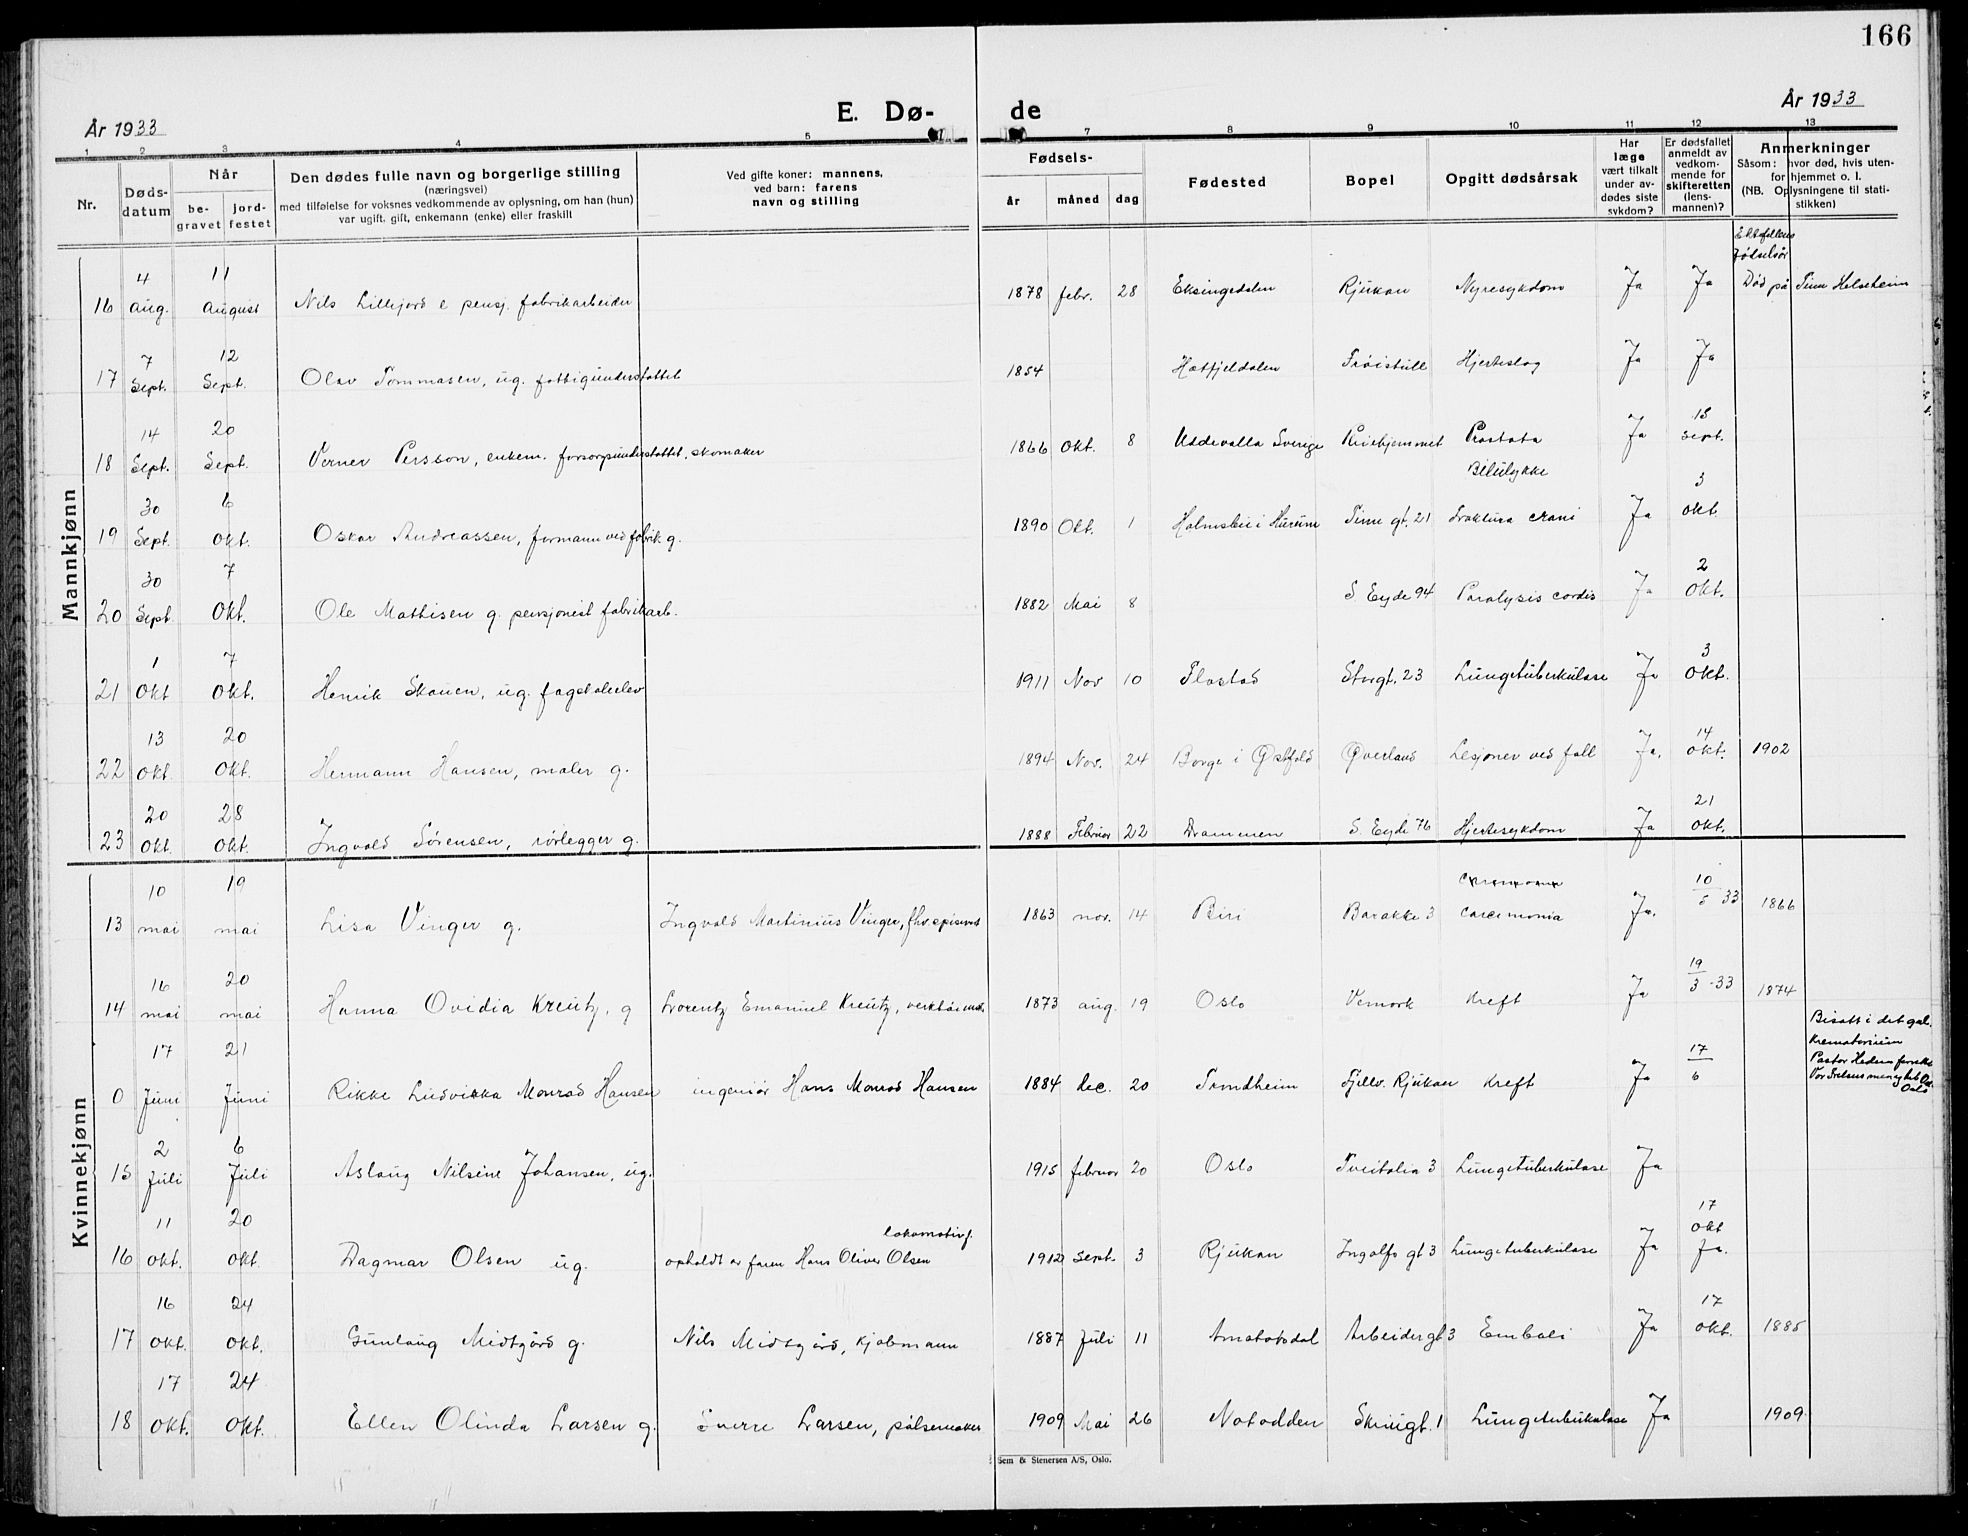 166
År 1933
E. Dø- de
År 1933
1 2 3 4 5 7 8 9 10 11 12 13
Nr.
Døds-datum
Når
be-gravet
jord-festet
Den dødes fulle navn og borgerlige stilling
(næringsvei)
med tilføielse for voksnes vedkommende av oplysning, om han (hun)
var ugift, gift, enkemann (enke) eller fraskilt
Ved gifte koner: mannens,
ved barn: farens
navn og stilling
Fødsels-
år måned dag
Fødested
Bopel
Opgitt dødsårsak
Har læge vært tilkalt under av-dødes siste sykdom?
Er dødsfallet anmeldt av vedkom-mende for skifteretten (lens-mannen)?
Anmerkninger
Såsom: hvor død, hvis uten-
for hjemmet o. l.
(NB. Oplysningene til stati-
stikken)
Mannkjønn
Ektefellens
fødselsår
16 4 aug. 11 august Nils Lillejord e pensj. fabrikarbeider 1878 febr. 28 Eksingedalen Rjukan Nyresykdom Ja Ja Død på Tinn Helseheim
17 7 Sept. 12 Sept. Olav Tommasen, ug. fattigunderstøttet 1854 Hatfjeldalen Frøistull Hjerteslag Ja Ja
18 14 Sept. 20 Sept. Verner Persson, enkem. forsorgsunderstøttet, skomaker 1866 Okt. 8 Uddevalla Sverige Pleiehjemmet Prostata Ja 15 Sept.
19 30 Sept. 6 Okt. Oskar Andreassen, formann ved fabrik g. 1890 Okt. 1 Holmsbu i Hurum Tinn gt. 21 Bilulykke Fraktura crani Ja 3 okt.
20 30 Sept. 7 Okt. Ole Mathisen g. pensjonist fabrikarb. 1882 Mai 8 S. Eyde 94 Paralysis cordis Ja 2 Okt.
21 1 Okt 7 Okt. Henrik Skauen, ug. fagskoleelev 1911 Nov 10 Flostad Storgt. 23 Lungetuberkulose Ja 3 Okt.
22 13 Okt. 20 Okt. Hermann Hansen, maler g. 1894 Nov. 24 Borge i Østfold Øverland Lesjoner ved fall Ja. 14 Okt. 1902
23 20 Okt. 28 Okt. Ingvald Sørensen, rørlegger g. 1888 Februar 22 Drammen S. Eyde 76 Hjertesykdom Ja 21 Okt.
Kvinnekjønn
13 10 mai 19 mai Lisa Vinger g. Ingvald Martinius Vinger, 1863 nov. 14 Biri Barakke 3 Ja. 10/5 33 1866
14 16 mai 20 mai Hanna Ovidia Kreutz, g Lorentz Emanuel Kreutz, 1873 aug. 19 Oslo Vemork Kreft Ja 19/3-33 1874
0 17 Juni 21 Juni Rikke Ludvikka Monrad Hansen ingeniør Hans Monrad Hansen 1884 dec. 20 Trondheim Fjellv. Rjukan Kreft Ja 17/6 Bisatt i det gml.
Krematorium
Pastor Hedem
Oslo
15 2 Juli 6 Juli Aslaug Nilsine Johansen, ug. 1915 februar 20 Oslo Tveitolia 3 Lungetuberkulose Ja
16 11 okt. 20 okt. Dagmar Olsen ug. opholdt av faren Hans Oliver Olsen lokomotivf. 1912 Sept. 3 Rjukan Ingolfs gt 3 Lungetuberkulose Ja 17 okt Ja.
17 16 okt. 24 okt. Gunlaug Midtgård g. Nils Midtgård, kjøbmann 1887 Juli 11 Arbeidergt 3 Emboli Ja 17 okt. 1885
18 17 okt. 24 okt. Ellen Olinda Larsen g. Sverre Larsen, pølsemaker 1909 Mai 26 Notodden Skriugt. 1 Lungetuberkulose Ja 1909
Sem & Stenersen A/S, Oslo.